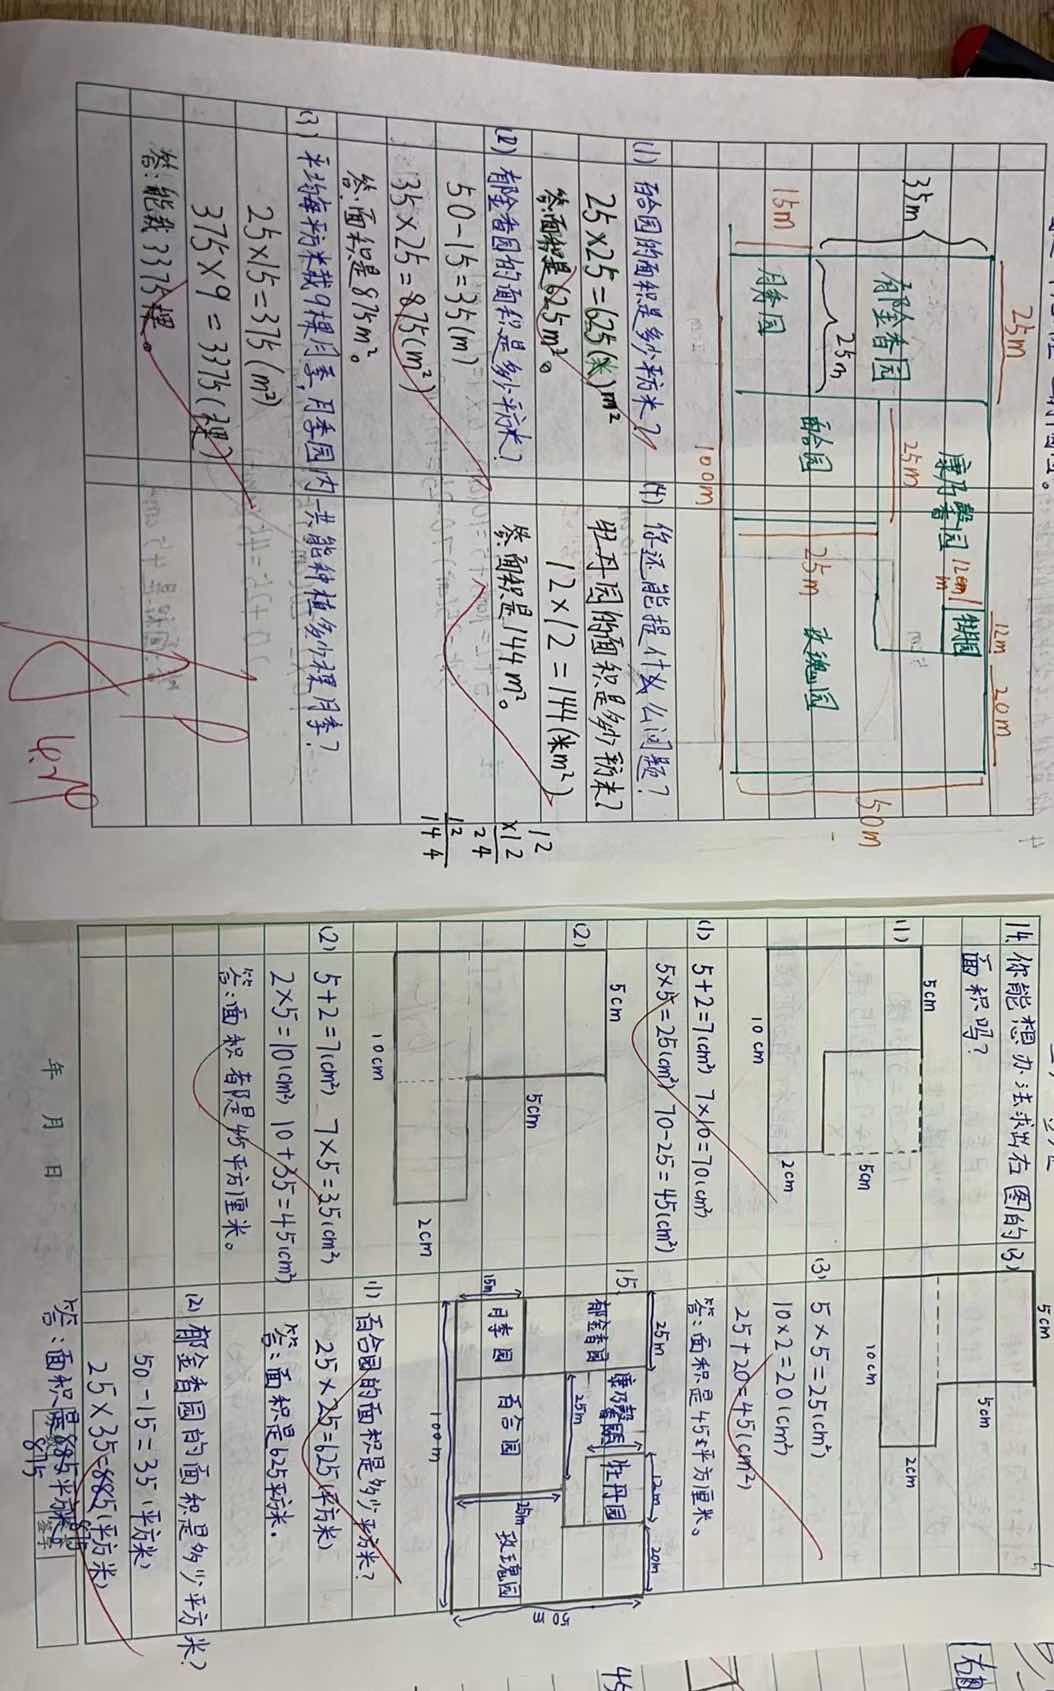 25m
35m
郁金香园
25m
康乃馨园
12cm
m
牡丹园
12m
20m
25m
15m
月季园
百合园
25m
玫瑰园
50m
100m
(1) 百合园的面积是多少平方米?
25×25=625(米)m²
答:面积是625m²。
(2) 郁金香园的面积是多少平方米?
50-15=35(m)
35×25=875(m²)
答:面积是875m²。
(3) 平均每平方米栽9棵月季,月季园内一共能种植多少棵月季?
25×15=375(m²)
375×9=3375(棵)
答:能栽3375棵。
(4) 你还能提什么问题?
牡丹园的面积是多少平方米?
12×12=144(米m²)
答:面积是144m²。
12
×12
24
12
144
14.你能想办法求出右图的
面积吗?
(1)
5cm
5cm
2cm
10cm
(1) 5+2=7(cm²) 7×10=70(cm²)
5×5=25(cm²) 70-25=45(cm²)
(2)
5cm
5cm
10cm
2cm
(2) 5+2=7(cm²) 7×5=35(cm²)
2×5=10(cm²) 10+35=45(cm²)
答:面积都是45平方厘米。
(3)
5cm
5cm
10cm
2cm
(3) 5×5=25(cm²)
10×2=20(cm²)
25+20=45(cm²)
答:面积是45平方厘米。
15.
25m
12m
20m
郁金香园
康乃馨园
牡丹园
25m
15m
月季园
百合园
25m
玫瑰园
50m
100m
(1) 百合园的面积是多少平方米?
25×25=625(平方米)
答:面积是625平方米.
(2) 郁金香园的面积是多少平方米?
50-15=35(平方米)
25×35=885(平方米)
875
答:面积是885平方米。
875
年 月 日
签字